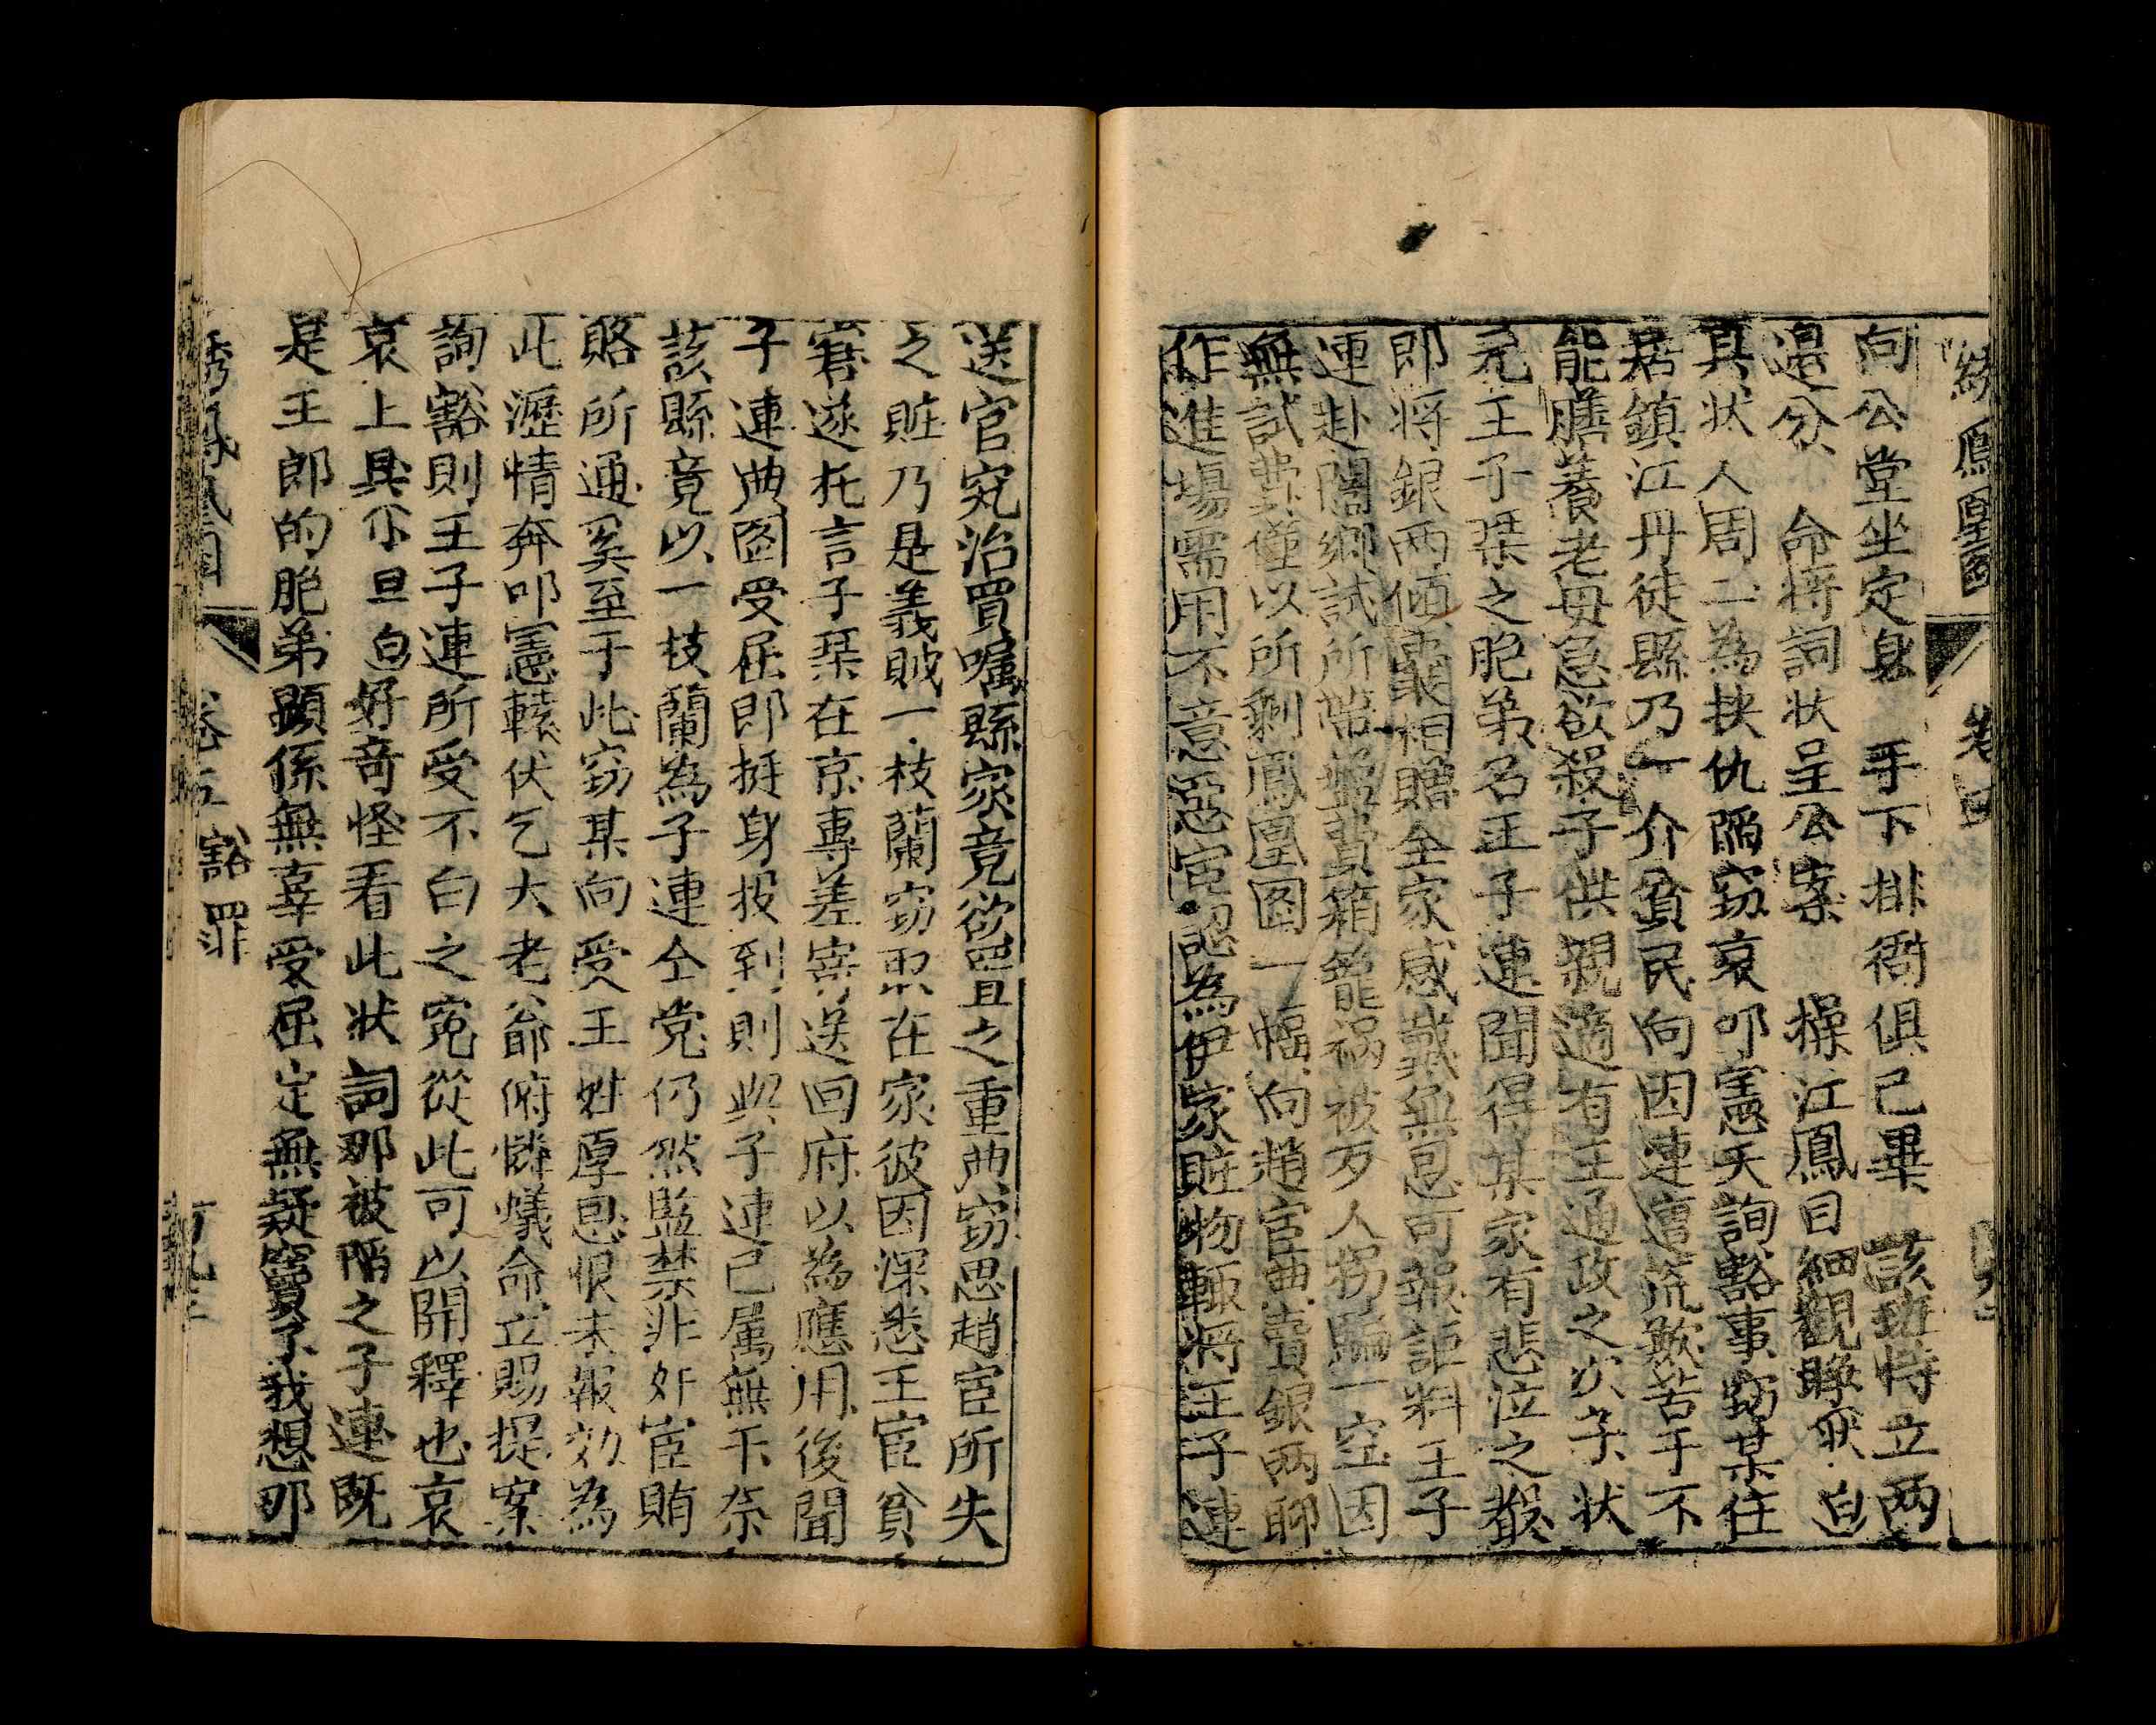 綉鳳凰圖 卷四
向公堂坐定身 手下排衙俱己畢 該班侍立两
邉分 命将詞状呈公案 操江鳳目細觀睁 𠇍 白
具状人周二為挟仇陷窃哀叩憲天詢豁事窃某住
居鎮江丹徒縣乃一介貧民向因連遭荒歉苦于不
能膳養老母急欲殺子供親適有王通政之次子状
元王子琹之胞弟名王子連聞得某家有悲泣之聲
即将銀两傾囊相贈全家感戴無恩可報詎料王子
連赴闈鄉試所带盤費箱籠禍被歹人拐騙一空因
無試費僅以所剩鳳凰图一幅向趙宦典賣銀两聊
作進塲需用不意惡宦認為伊家賍物輙将王子連
送官究治買嘱縣家竟欲置之重典窃思趙宦所失
之賍乃是義賊一枝蘭窃取在家彼因深悉王宦貧
窘遂托言子琹在京專差寄送回府以為應用後聞
子連典图受屈即挺身投到則與子連已属無干奈
該縣竟以一枝蘭為子連仝党仍然監禁非奸宦賄
賂所通奚至于此窃某向受王姓厚恩恨未報効為
此瀝情奔叩憲轅伏乞大老爺俯憐蟻命立賜提案
詢豁則王子連所受不白之冤從此可以開釋也哀
哀上具 𠇍 旦白好竒怪看此状詞那被陷之子連既
是王郎的胞弟顕係無辜受屈定無疑竇了我想那
綉鳳凰图 卷五 豁罪